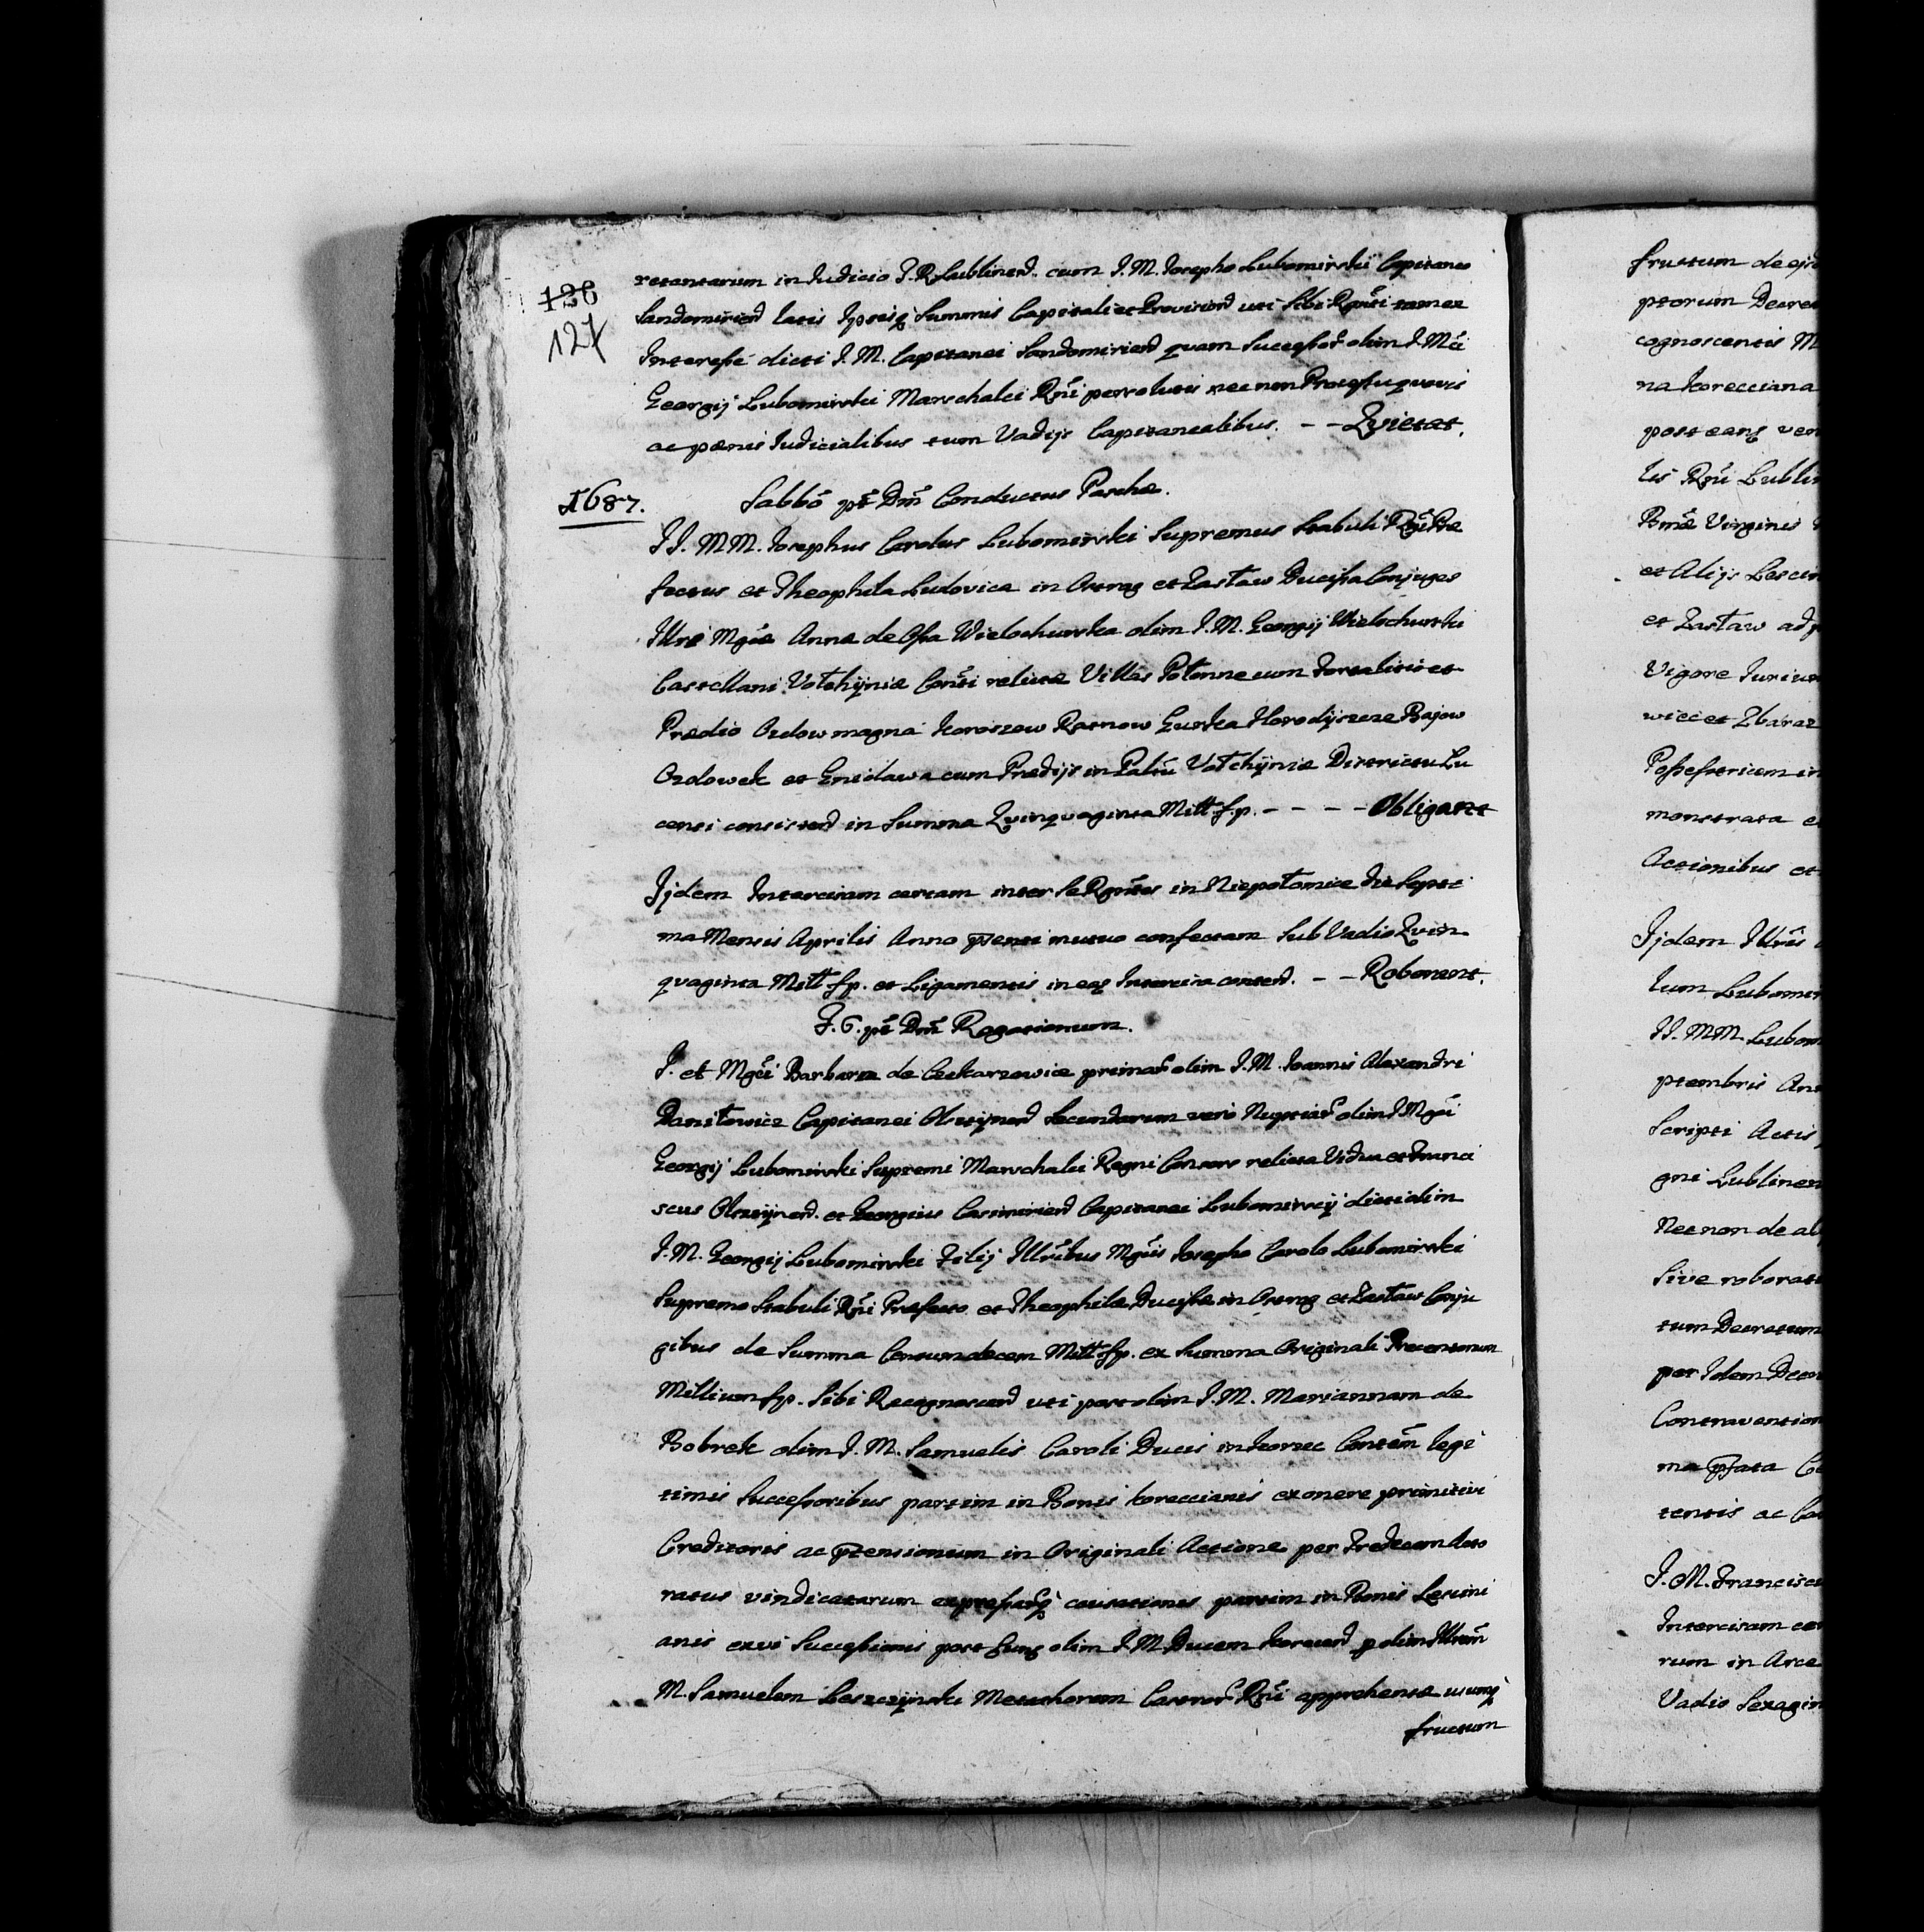 126
127
retantarum in Judicio T. R. Lublinen. cum J. M. Josepho Lubomirski Capitaneo
Sandomirien latis Ipsisq Summis Capitali et Provision uti Sibi Rgnti tam ex
Interesse dicti J. M. Capitanei Sandomirien quam Successor olim J. Mci
Georgij Lubomirski Marschalci Rni persolutis necnon Processu quovis
ac pœnis Judicialibus tum Vadijs Capitanealibus. - - Qvietat.
1687.
Sabbo pt Dm Conductus Paschæ.
JJ. MM. Josephus Carolus Lubomirski Supremus Stabuli Rgni Præ
fectus et Theophila Ludovica in Ostrog et Zasław Ducissa Conjuges
Illri Mgcæ Annæ de Ossa Wielochurska olim J. M. Georgij Wielochurski
Castellani Vołhyniæ Consi relictæ Villas Połonne cum Fortalitio et
Prædio Ozdow magna Koroszow Ratnow Gurka Horodyszcze Bajow
Ozdowek et Gnidawa cum Prædijs in Paltu Vołhyniæ Districtu Lu
censi consisten in Summa Qvinqvaginta Mill fp. - - - - Obligant
Ijdem Intercisam certam inter Se Rgntes in Niepołomice die Septi
ma Mensis Aprilis Anno pnti mutuo confectam Sub Vadio Qvin
qvaginta Mill fp. et Ligamentis in eaq Intercisa conten. - - Roborant.
F. 6. pt Dm Rogationum.
J. et Mgci Barbara de Cekarzewice primar olim J. M. Joannis Alexandri
Daniłowicz Capitanei Olsztynen Secundarum vero Nuptiar olim J Mgci
Georgij Lubomirski Supremi Marschalci Regni Consors relicta Vidua et Franci
scus Olsztynen. et Georgius Casimirien Capitanei Lubomirscij dicti olim
J. M. Georgij Lubomirski Filij Illribus Mgcis Josepho Carolo Lubomirski
Supremo Stabuli Rni Præfecto et Theophilæ Ducissæ in Ostrog et Zasław Conju
gibus de Summa Centum decem Mill fp. ex Summa Originali Trecentorum
Millium fp. Sibi Recognoscen uti post olim J. M. Mariannam de
Bobrek olim J. M. Samuelis Caroli Ducis in Korzec Contem legi
timis Successoribus partim in Bonis Koreccianis ex onere primitivi
Creditoris ac ptensionum in Originali Actione per Tredecim deto
ratus vindicatarum expressarq causationes partim in Bonis Lescini
anis ex vi Successionis post hunq olim J. M Ducem Korecen p olim Illrem
M. Samuelem Leszczynski Metachorem Castror Rni apprehensæ usumq
fructum
fructum de ejs
ptorum Decre
cognoscentis M
na Korecciana
post eanq ven
les Rni Lublin
Bmæ Virginis
et Alijs Lescin
et Zasław ad
Vigore Jurium
wiec et Zbaraz
Possessricem in
monstrata e
Actionibus et
Ijdem Illres
lum Lubomir
JJ. MM. Lubom
ptembris Ann
Scripti Actis
gni Lublinen
Necnon de al
Sive roborati
tum Decretum
per Idem Decr
Contravention
ma pfata C
tentis ac Ca
J. M. Francisc
Intercisam cer
rum in Arce
Vadio Sexagin